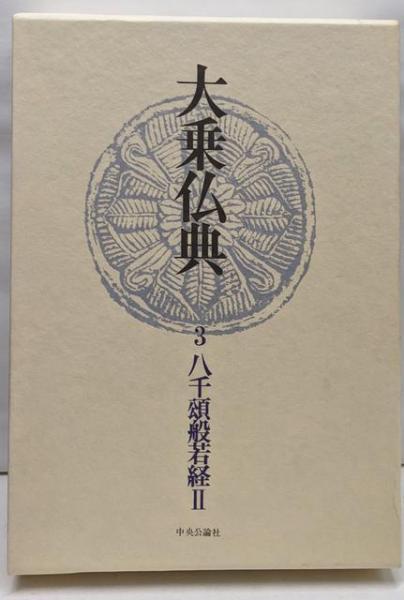 大乗仏典
3 八千頌般若経II
中央公論社